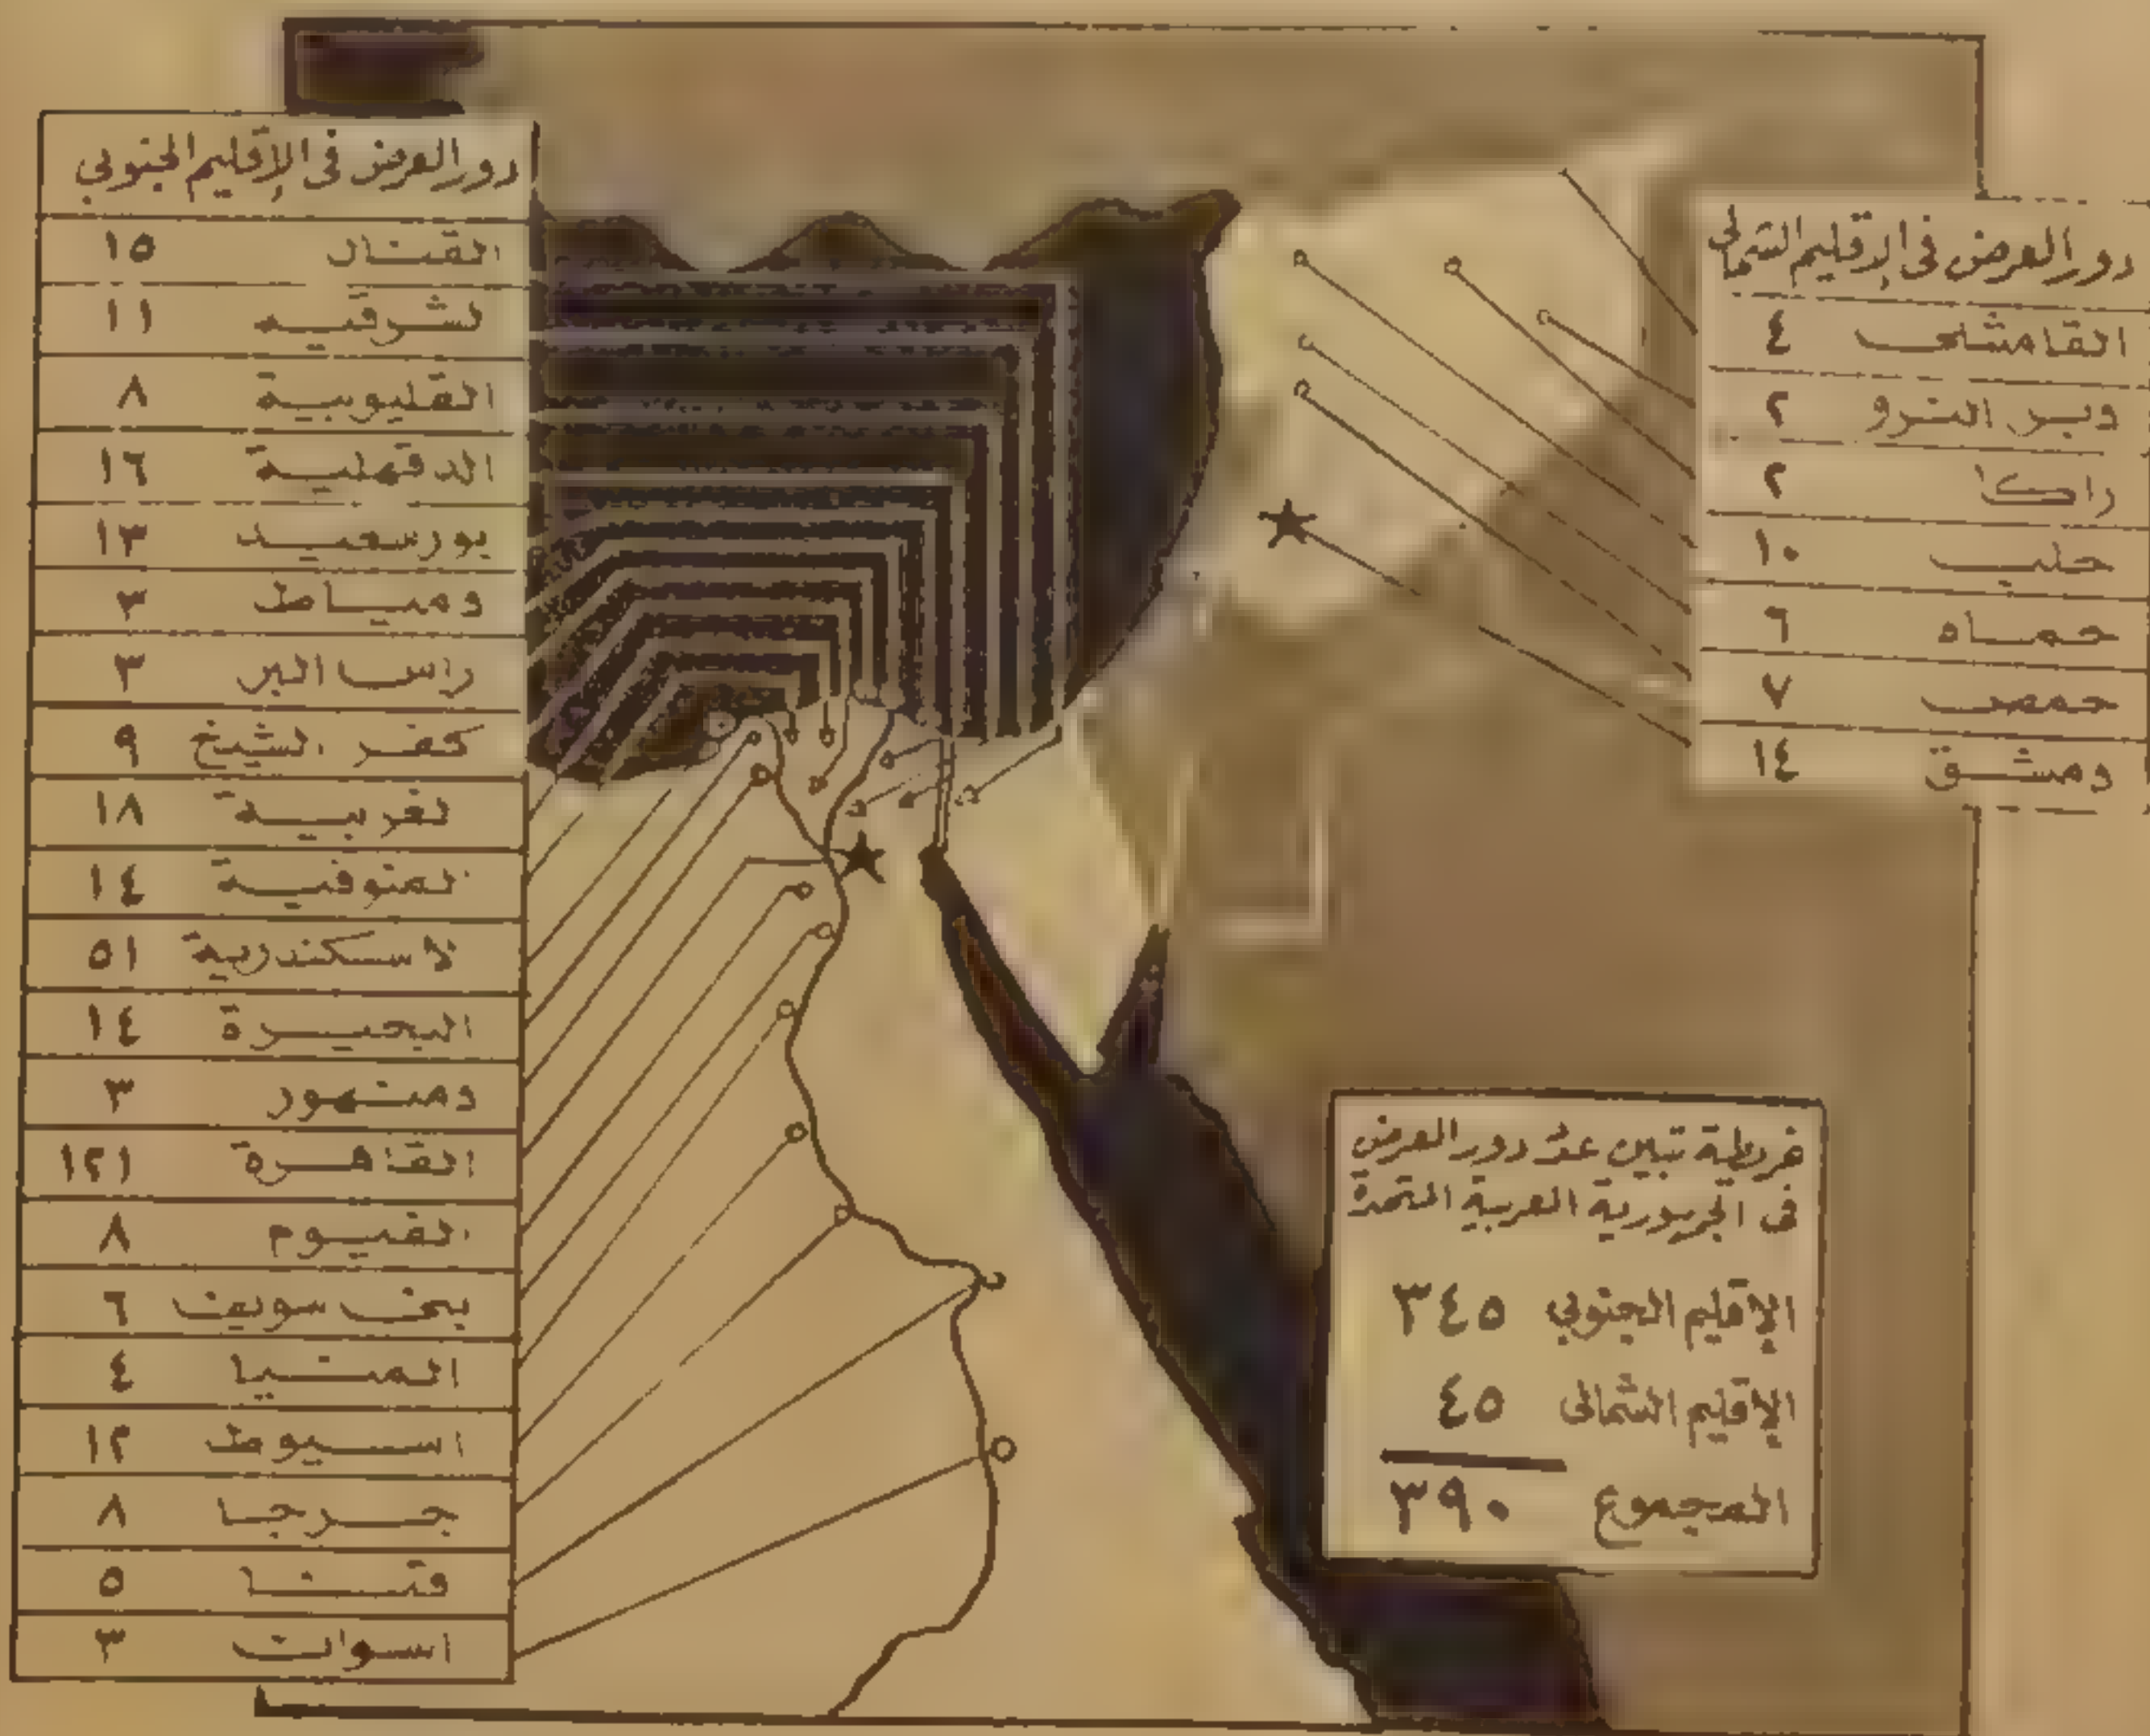 دور العرض فى الإقليم الجنوبي
القنال ١٥
لشرقيه ١١
القليوبية ٨
الدقهلية ١٦
بورسعيد ١٣
دمياط ٣
راس البر ٣
كفر الشيخ ٩
لغربية ١٨
المنوفية ١٤
لاسكندرية ٥١
البحيرة ١٤
دمنهور ٣
القاهرة ١٢١
الفيوم ٨
بنى سويف ٦
المنيا ٤
اسيوط ١٢
جرجا ٨
قنا ٥
اسوان ٣
دور العرض فى الإقليم الشمالى
القامشلى ٤
دير الزو ٢
راكا ٢
حلب ١٠
حماه ٦
حمص ٧
دمشق ١٤
خريطة تبين عدد دور العرض
فى الجمهورية العربية المتحدة
الإقليم الجنوبي ٣٤٥
الإقليم الشمالى ٤٥
المجموع ٣٩٠